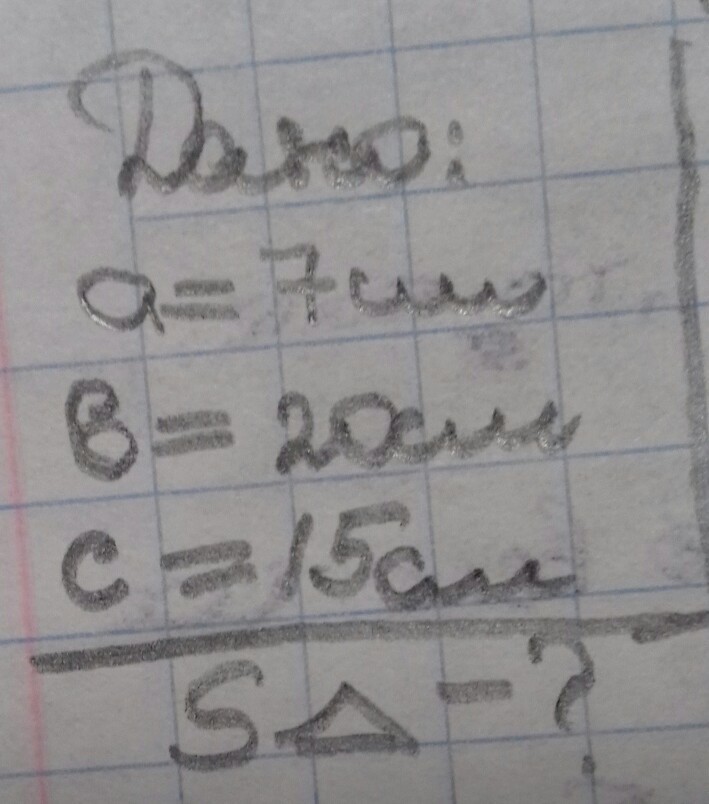 Дано:
a = 7 см
в = 20 см
c = 15 см
S△ - ?